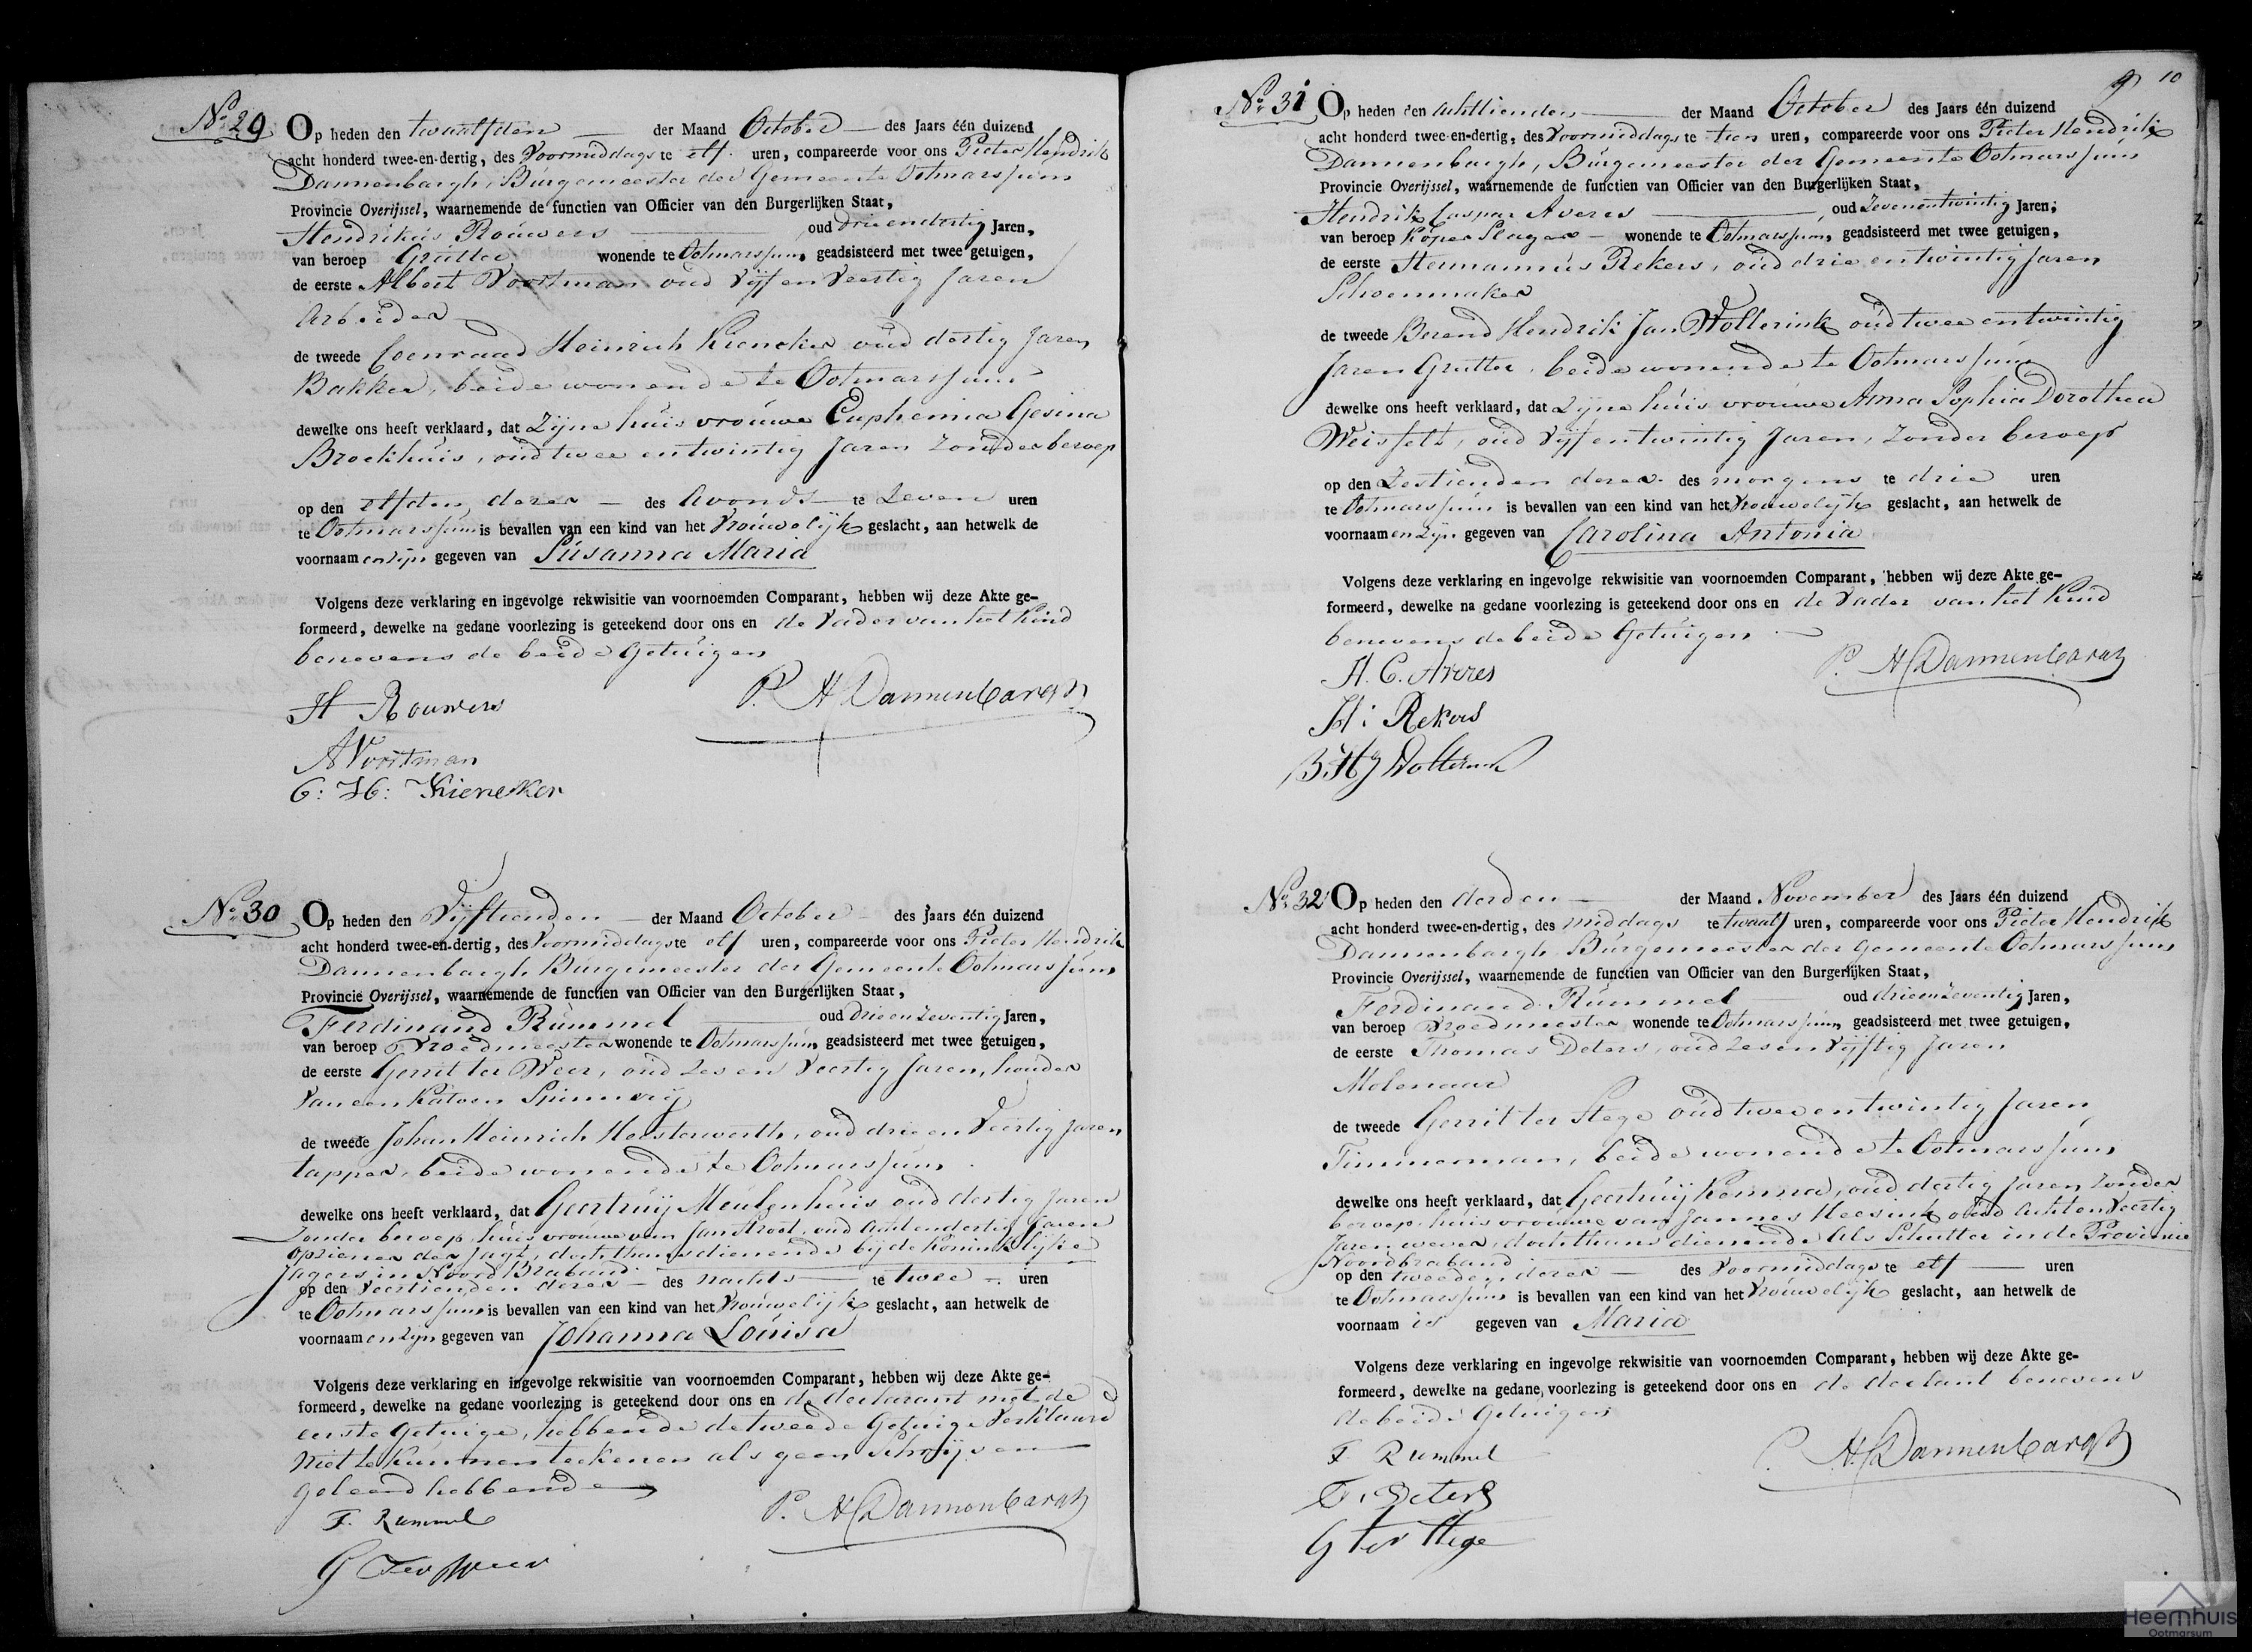 No. 29 Op heden den twaalfden der Maand October des Jaars één duizend
acht honderd twee-en-dertig, des Voormiddags te elf uren, compareerde voor ons Pieter Hendrik
Dannenbargh, Burgemeester der Gemeente Ootmarssum
Provincie Overijssel, waarnemende de functien van Officier van den Burgerlijken Staat,
Hendrikus Rouwers oud drieendertig Jaren,
van beroep Grutter wonende te Ootmarssum, geadsisteerd met twee getuigen,
de eerste Albert Voortman oud Vijf en Veertig Jaren
Arbeider
de tweede Coenraad Heinrich Kieneker oud dertig Jaren
Bakker, beide wonende te Ootmarssum
dewelke ons heeft verklaard, dat Zijne huisvrouwe Euphemia Gesina
Broekhuis, oud twee en twintig Jaren Zonder beroep
op den elfden dezer des Avonds te Zeven uren
te Ootmarssum is bevallen van een kind van het Vrouwelijk geslacht, aan hetwelk de
voornaamen zijn gegeven van Susanna Maria
Volgens deze verklaring en ingevolge rekwisitie van voornoemden Comparant, hebben wij deze Akte ge-
formeerd, dewelke na gedane voorlezing is geteekend door ons en de Vader van het Kind
benevens de beide Getuigen
H Rouwers
P. H Dannenbargh
A Voortman
C: H: Kieneker
No. 30 Op heden den Vijftienden der Maand October des Jaars één duizend
acht honderd twee-en-dertig, des Voormiddags te elf uren, compareerde voor ons Pieter Hendrik
Dannenbargh Burgemeester der Gemeente Ootmarssum
Provincie Overijssel, waarnemende de functien van Officier van den Burgerlijken Staat,
Ferdinand Rummel oud drie en Zeventig Jaren,
van beroep Vroedmeester wonende te Ootmarssum, geadsisteerd met twee getuigen,
de eerste Gerrit ter Weer, oud Zes en Veertig Jaren, houder
van een Katoen Spinnerij
de tweede Johan Heinrich Hoesterwerth, oud drie en Veertig Jaren
tapper, beide wonende te Ootmarssum
dewelke ons heeft verklaard, dat Geertruij Meulenhuis oud dertig Jaren
Zonder beroep, huisvrouwe van Jan Stroot, oud Acht en dertig Jaren
opziener der Jagt, doch thans dienende bij de Koninklijke
Jagers in Noord Braband
op den Veertienden dezer des nachts te twee uren
te Ootmarssum is bevallen van een kind van het Vrouwelijk geslacht, aan hetwelk de
voornaamen zijn gegeven van Johanna Louisa
Volgens deze verklaring en ingevolge rekwisitie van voornoemden Comparant, hebben wij deze Akte ge-
formeerd, dewelke na gedane voorlezing is geteekend door ons en de declarant met de
eerste Getuige, hebbende de tweede Getuige Verklaard
niet te kunnen teekenen als geen schrijven
geleerd hebbende
F. Rummel
P. H Dannenbargh
G Ter Weer
9 10
No. 31 Op heden den Achttienden der Maand October des Jaars één duizend
acht honderd twee-en-dertig, des Voormiddags te tien uren, compareerde voor ons Pieter Hendrik
Dannenbargh, Burgemeester der Gemeente Ootmarssum
Provincie Overijssel, waarnemende de functien van Officier van den Burgerlijken Staat,
Hendrik Caspar Averes oud Zevenentwintig Jaren,
van beroep Koper Slager wonende te Ootmarssum, geadsisteerd met twee getuigen,
de eerste Hermannus Rekers, oud drie en twintig Jaren
Schoenmaker
de tweede Berend Hendrik Jan Wolterink oud twee en twintig
Jaren Grutter, beide wonende te Ootmarssum
dewelke ons heeft verklaard, dat Zijne huisvrouwe Anna Sophia Dorothea
Weisfelt, oud Vijf en twintig Jaren, Zonder beroep
op den Zestienden dezer des morgens te drie uren
te Ootmarssum is bevallen van een kind van het Vrouwelijk geslacht, aan hetwelk de
voornaamen zijn gegeven van Carolina Antonia
Volgens deze verklaring en ingevolge rekwisitie van voornoemden Comparant, hebben wij deze Akte ge-
formeerd, dewelke na gedane voorlezing is geteekend door ons en de Vader van het Kind
benevens de beide Getuigen
H. C. Averes
P. H Dannenbargh
H: Rekers
B H J Wolterink
No. 32 Op heden den derden der Maand November des Jaars één duizend
acht honderd twee-en-dertig, des middags te twaalf uren, compareerde voor ons Pieter Hendrik
Dannenbargh, Burgemeester der Gemeente Ootmarssum
Provincie Overijssel, waarnemende de functien van Officier van den Burgerlijken Staat,
Ferdinand Rummel oud drie en Zeventig Jaren,
van beroep Vroedmeester wonende te Ootmarssum, geadsisteerd met twee getuigen,
de eerste Thomas Deters, oud Zes en Vijftig Jaren
Molenaar
de tweede Gerrit ter Stege oud twee en twintig Jaren
Timmerman, beide wonende te Ootmarssum
dewelke ons heeft verklaard, dat Geertruij Kemna, oud dertig Jaren Zonder
beroep, huisvrouwe van Jannes Heesink oud Acht en Veertig
Jaren wever, doch thans dienende Als Schutter in de Provincie
Noordbraband
op den tweeden dezer des Voormiddags te elf uren
te Ootmarssum is bevallen van een kind van het Vrouwelijk geslacht, aan hetwelk de
voornaam is gegeven van Maria
Volgens deze verklaring en ingevolge rekwisitie van voornoemden Comparant, hebben wij deze Akte ge-
formeerd, dewelke na gedane voorlezing is geteekend door ons en de declant benevens
de beide Getuigen
F. Rummel
P. H Dannenbargh
T. Deters
G ter Stege
Heemhuis
Ootmarsum